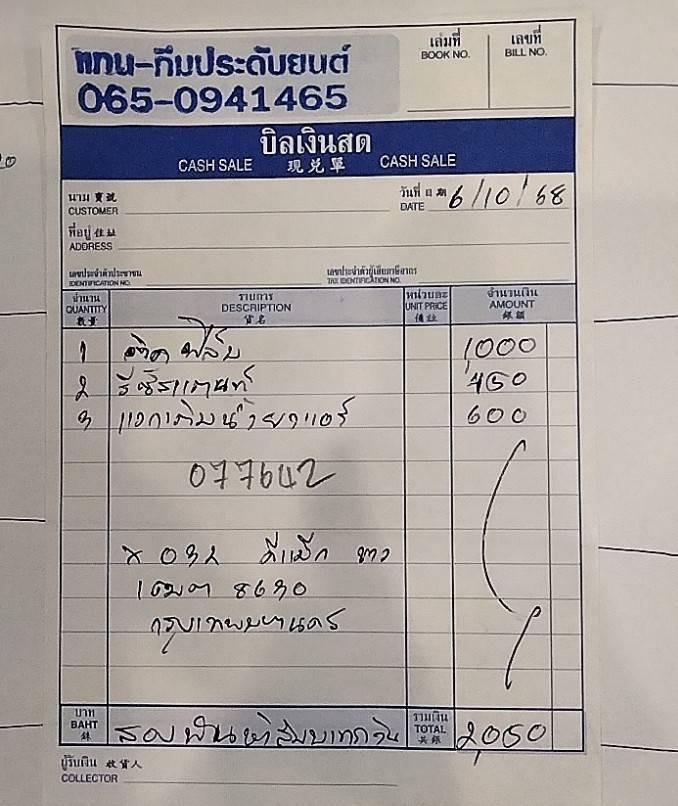 แทน-กิมประดับยนต์
065-0941465
เล่มที่
BOOK NO.
เลขที่
BILL NO.
บิลเงินสด
CASH SALE 現兑單 CASH SALE
นาม 寶號
CUSTOMER
วันที่ 日期
DATE 6/10/68
ที่อยู่ 住址
ADDRESS
เลขประจำตัวประชาชน
IDENTIFICATION NO.
เลขประจำตัวผู้เสียภาษีอากร
TAX IDENTIFICATION NO.
จำนวน
QUANTITY
數量
รายการ
DESCRIPTION
貨名
หน่วยละ
UNIT PRICE
備註
จำนวนเงิน
AMOUNT
銀額
1 ติดฟิล์ม 1,000
2 450
3 น้ำยาแอร์ 600
077642
ดีแม็ก ขาว
8630
กรุงเทพมหานคร
บาท
BAHT
銖
สองพันห้าสิบบาทถ้วน
รวมเงิน
TOTAL
共銀
2,050
ผู้รับเงิน 收貨人
COLLECTOR